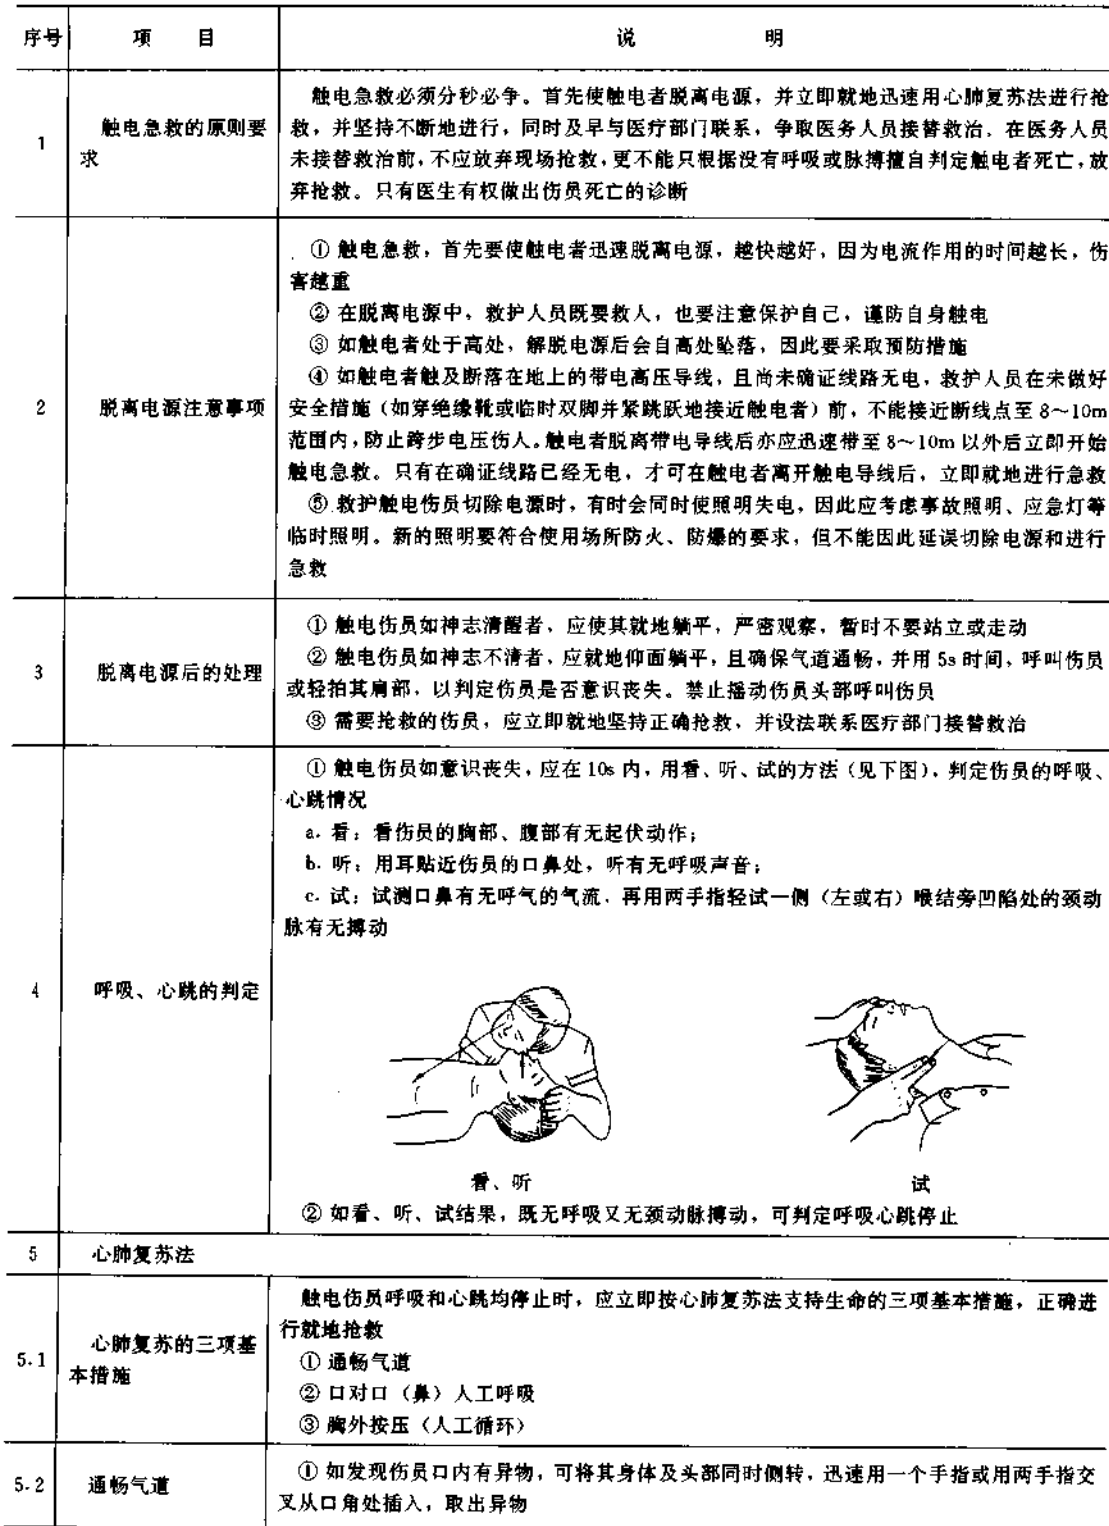 序号 项 目 说 明
触电急救必须分秒必争。首先使触电者脱离电源，并立即就地迅速用心肺复苏法进行抢
1 触电急救的原则要 救，并坚持不断地进行，同时及早与医疗部门联系，争取医务人员接替救治．在医务人员
求 未接替救治前，不应放弃现场抢救，更不能只根据没有呼吸或脉搏擅自判定触电者死亡，放
弃抢救。只有医生有权做出伤员死亡的诊断
① 触电急救，首先要使触电者迅速脱离电源，越快越好，因为电流作用的时间越长，伤
害越重
② 在脱离电源中，救护人员既要救人，也要注意保护自己，谨防自身触电
③ 如触电者处于高处，解脱电源后会自高处坠落，因此要采取预防措施
④ 如触电者触及断落在地上的带电高压导线，且尚未确证线路无电，救护人员在未做好
2 脱离电源注意事项 安全措施（如穿绝缘靴或临时双脚并紧跳跃地接近触电者）前，不能接近断线点至 8～10m
范围内，防止跨步电压伤人。触电者脱离带电导线后亦应迅速带至 8～10m 以外后立即开始
触电急救。只有在确证线路已经无电，才可在触电者离开触电导线后，立即就地进行急救
⑤ 救护触电伤员切除电源时，有时会同时使照明失电，因此应考虑事故照明、应急灯等
临时照明。新的照明要符合使用场所防火、防爆的要求，但不能因此延误切除电源和进行
急救
① 触电伤员如神志清醒者，应使其就地躺平，严密观察，暂时不要站立或走动
3 脱离电源后的处理 ② 触电伤员如神志不清者，应就地仰面躺平，且确保气道通畅，并用 5s 时间，呼叫伤员
或轻拍其肩部，以判定伤员是否意识丧失。禁止摇动伤员头部呼叫伤员
③ 需要抢救的伤员，应立即就地坚持正确抢救，并设法联系医疗部门接替救治
① 触电伤员如意识丧失，应在 10s 内，用看、听、试的方法（见下图），判定伤员的呼吸、
心跳情况
a. 看：看伤员的胸部、腹部有无起伏动作；
b. 听：用耳贴近伤员的口鼻处，听有无呼吸声音；
c. 试：试测口鼻有无呼气的气流．再用两手指轻试一侧（左或右）喉结旁凹陷处的颈动
脉有无搏动
4 呼吸、心跳的判定
看、听 试
② 如看、听、试结果，既无呼吸又无颈动脉搏动，可判定呼吸心跳停止
5 心肺复苏法
触电伤员呼吸和心跳均停止时，应立即按心肺复苏法支持生命的三项基本措施，正确进
行就地抢救
5.1 心肺复苏的三项基 ① 通畅气道
本措施 ② 口对口（鼻）人工呼吸
③ 胸外按压（人工循环）
5.2 通畅气道 ① 如发现伤员口内有异物，可将其身体及头部同时侧转，迅速用一个手指或用两手指交
叉从口角处插入，取出异物